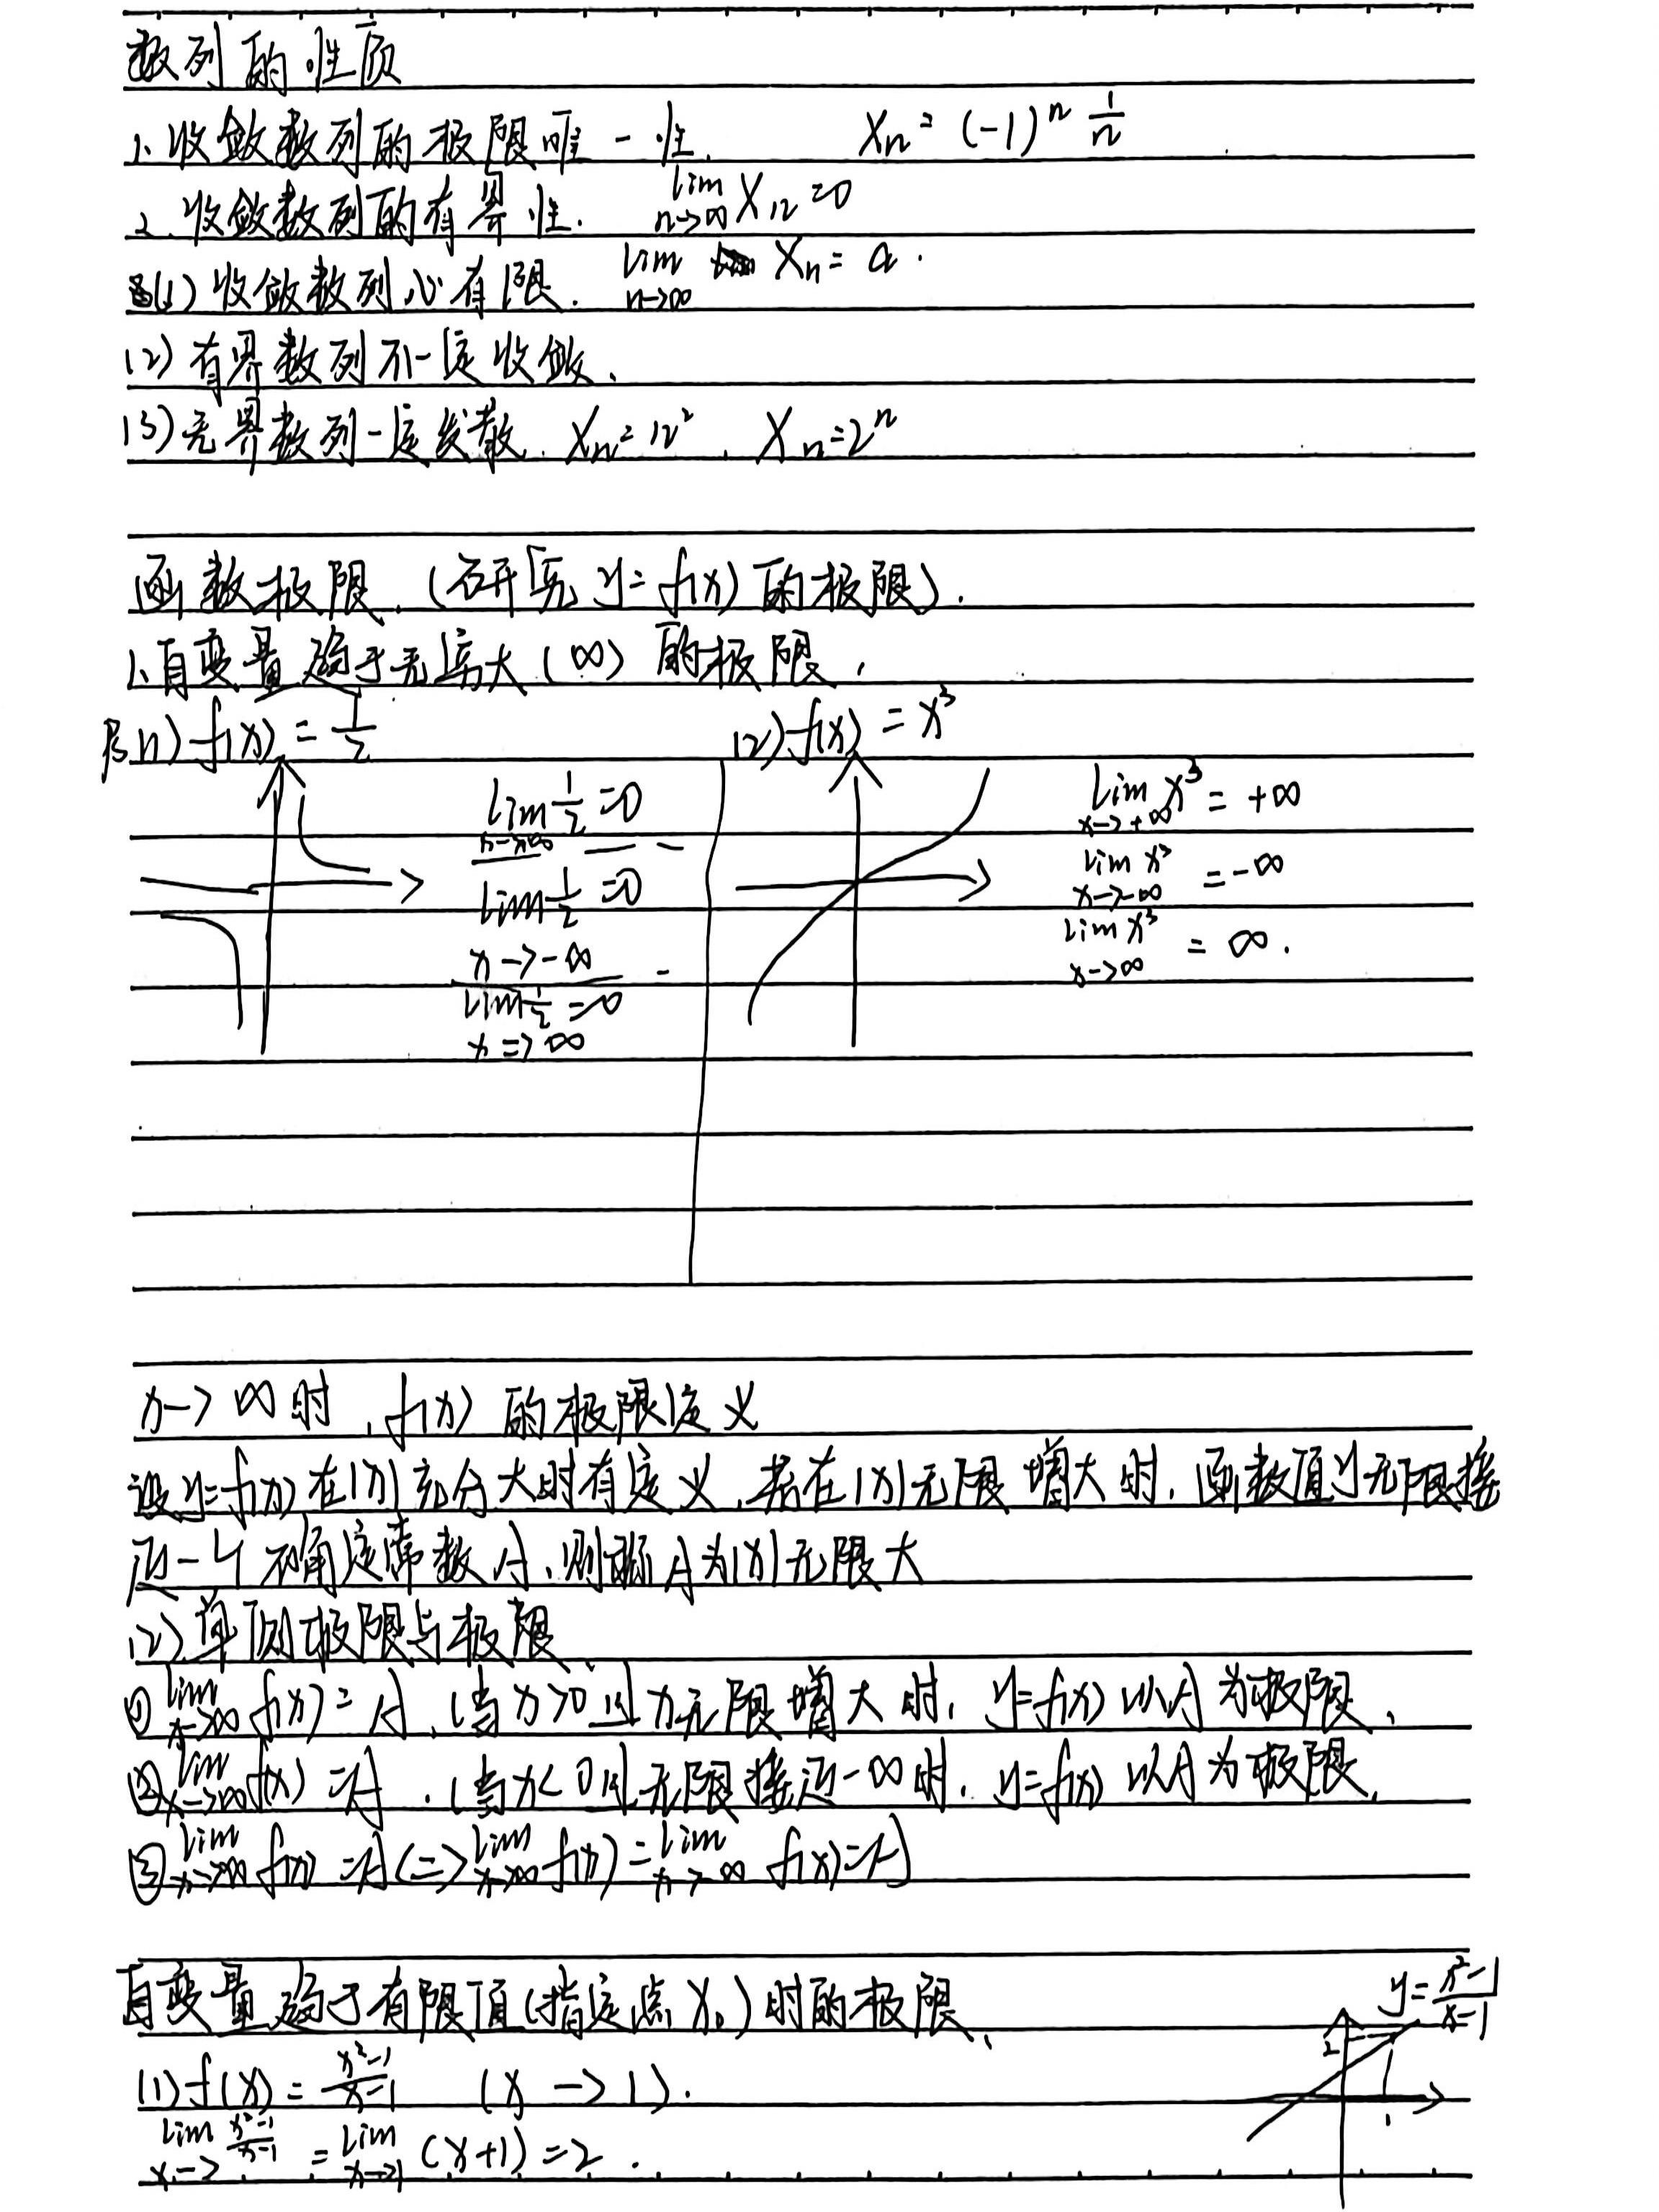 数列的性质
1、收敛数列的极限唯一性. Xn = (-1)^n 1/n
2、收敛数列的有界性. lim n->∞ Xn=0
(1) 收敛数列必有限. lim n->∞ Xn = a.
(2) 有界数列不一定收敛、
(3) 无界数列一定发散. Xn=n² , Xn=2^n
函数极限.(研究 y=f(x) 的极限).
1、自变量趋于无穷大(∞) 的极限.
(1) f(x) = 1/2 (2) f(x) = x³
lim 1/2 =0 lim x->+∞ x³ = +∞
lim 1/2 =0 x->-∞ lim x³ x->-∞ = -∞
lim 1/2 =0 x=>∞ lim x³ x->∞ = ∞.
x->∞时,f(x) 的极限定义
设y=f(x)在|x|充分大时有定义,若在|x|无限增大时,函数值y无限接
近一个确定常数A,则称A为|x|无限大
(2) 单侧极限与极限
① lim x->∞ f(x) = A .(当x>0且x无限增大时, y=f(x) 以A为极限、
② lim x->∞ f(x) =A .(当x<0且无限接近-∞时, y=f(x) 以A为极限.
③ lim x->∞ f(x) =A (=> lim x->∞ f(x) = lim x->-∞ f(x)=A)
自变量趋于有限值(指定点X₀)时的极限、 y= x²-1/x-1
(1) f(x) = x²-1/x-1 (x -> 1). 2 1
lim x-> x²-1/x-1 = lim x->1 (x+1) =2 .